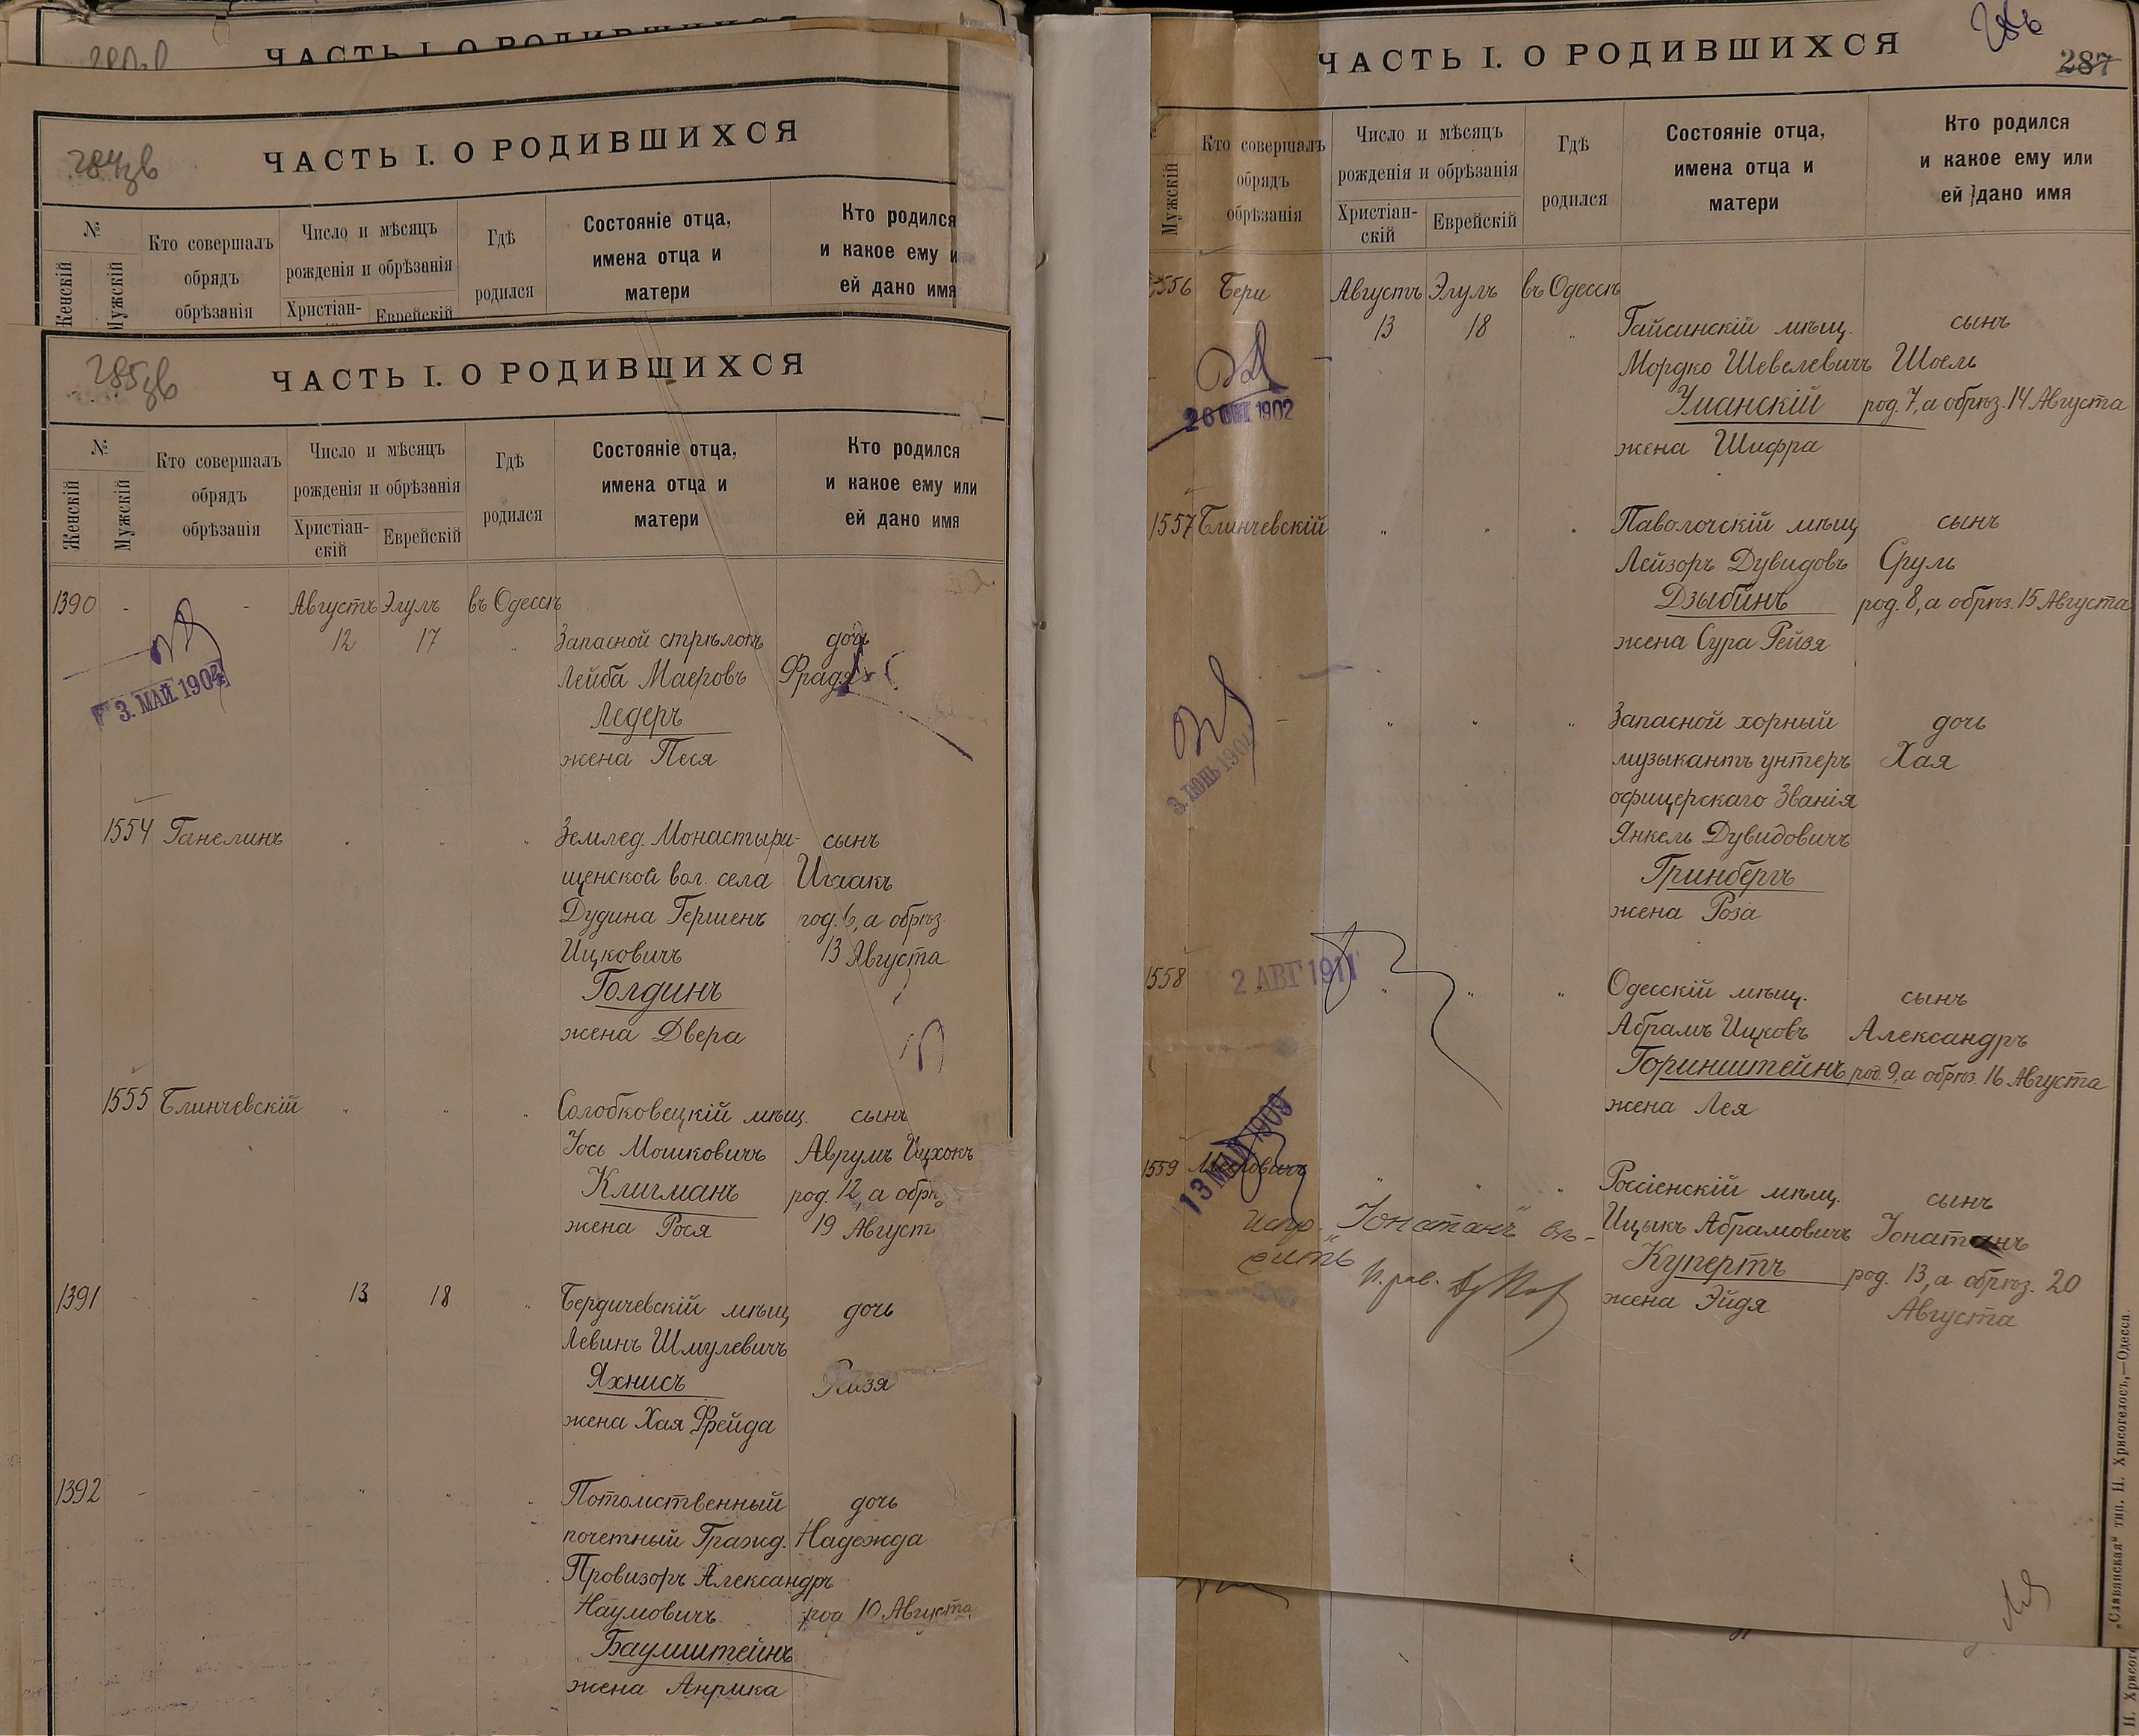 ЧАСТЬ I. О РОДИВШИХСЯ
284зв
ЧАСТЬ I. О РОДИВШИХСЯ
№
Женскій
Мужскій
Кто совершалъ
обрядъ
обрѣзанія
Число и мѣсяцъ
рожденія и обрѣзанія
Христіан-
Еврейскій
Гдѣ
родился
Состояніе отца,
имена отца и
матери
Кто родился
и какое ему и
ей дано имя
285зв
ЧАСТЬ I. О РОДИВШИХСЯ
№
Женскій
Мужскій
Кто совершалъ
обрядъ
обрѣзанія
Число и мѣсяцъ
рожденія и обрѣзанія
Христіан-
скій
Еврейскій
Гдѣ
родился
Состояніе отца,
имена отца и
матери
Кто родился
и какое ему или
ей дано имя
1390 - - Августъ Элулъ въ Одессѣ
12 17 " Запасной стрѣлокъ дочь
Лейба Маеровъ Фрадя
Ледеръ
жена Песя
3. МАЙ. 1904
1554 Ганелинъ " " " Землед. Монастыри- сынъ
щенской вол. села Исаакъ
Дудина Гершенъ род. 6, а обрѣз.
Ицковичъ 13 Августа
Голдинъ
жена Двера
1555 Блинчевскій " " " Солобковецкій мѣщ. сынъ
Іось Мошковичъ Аврумъ Ицхокъ
Клигманъ род. 12, а обрѣз
жена Рося 19 Август
1391 - - 13 18 " Бердичевскій мѣщ дочь
Левинъ Шмулевичъ
Яхнисъ Рейзя
жена Хая Фрейда
1392 - - " " " Потомственный дочь
почетный Гражд. Надежда
Провизоръ Александръ
Наумовичъ род 10 Августа
Баумштейнъ
жена Анрика
286
287
ЧАСТЬ I. О РОДИВШИХСЯ
Мужскій
Кто совершалъ
обрядъ
обрѣзанія
Число и мѣсяцъ
рожденія и обрѣзанія
Христіан-
скій
Еврейскій
Гдѣ
родился
Состояніе отца,
имена отца и
матери
Кто родился
и какое ему или
ей дано имя
1556 Бери Августъ Элулъ въ Одессѣ
13 18 " Гайсинскій мѣщ. сынъ
Мордко Шевелевичъ Шоель
Уманскій род. 7, а обрѣз. 14 Августа
жена Шифра
26 ОКТ 1902
1557 Блинчевскій " " " Паволочскій мѣщ сынъ
Лейзоръ Дувидовъ Срулъ
Дзыбинъ род. 8, а обрѣз. 15 Августа
жена Сура Рейзя
- " " " Запасной хорный дочь
музыкантъ унтеръ Хая
офицерскаго Званія
Янкель Дувидовичъ
Гринбергъ
жена Роза
3. ІЮНЬ 190
1558 2 АВГ 1911 " " " Одесскій мѣщ. сынъ
Абрамъ Ицковъ Александръ
Горинштейнъ род. 9, а обрѣз. 16 Августа
жена Лея
13 МАЙ 1909
1559 " " " Россіенскій мѣщ. сынъ
Ицыкъ Абрамовичъ Іонатанъ
Купертъ род. 13, а обрѣз. 20
жена Эйдя Августа
"Іонатанъ" вѣ-
рить
„Славянская" тип. Н. Хрисогелосъ,—Одесса.